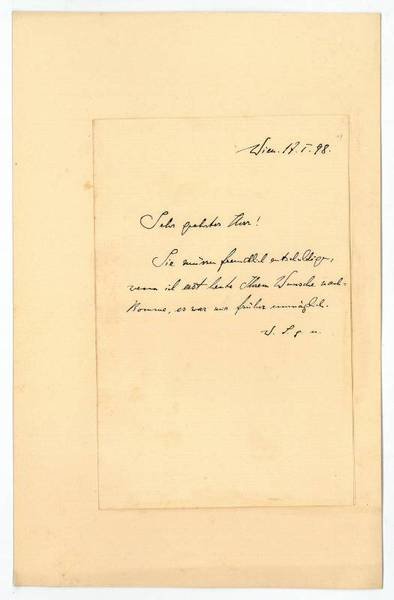 Wien. 17. I. 98.
Sehr geehrter Herr!
Sie müssen freundlich entschuldigen,
wenn ich erst heute Ihrem Wunsche nach-
komme, es war mir früher unmöglich.